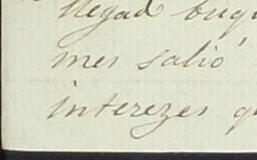 llegad buq
mes salió
interezes q